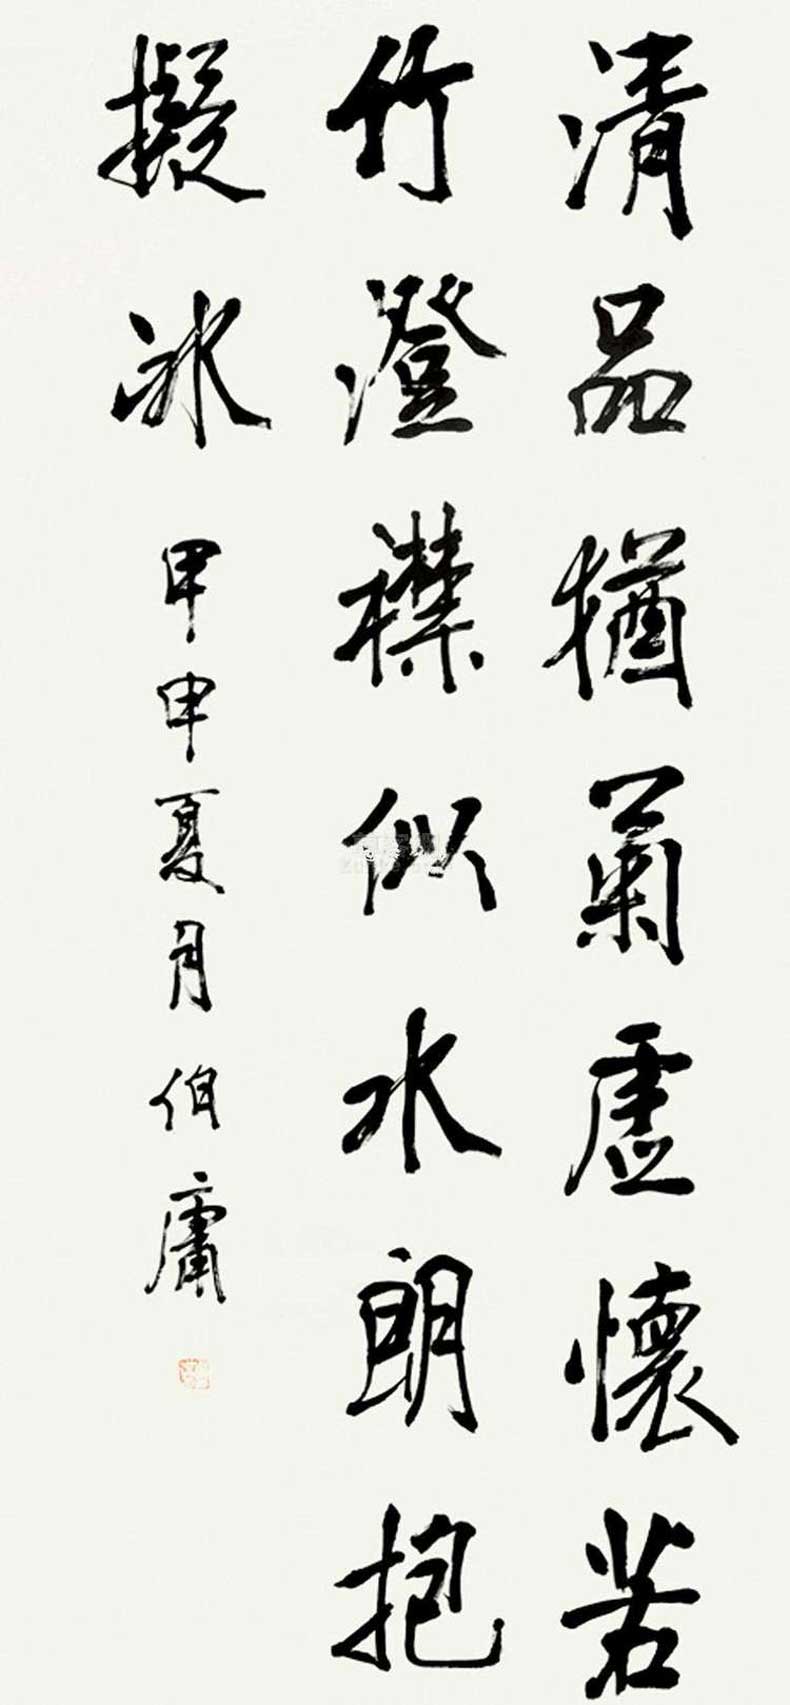 清品猶菊虛懷若
竹澄襟似水朗抱
擬冰
甲申夏月伯庸